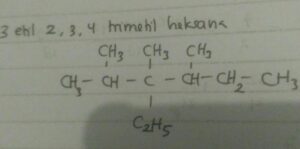 3 ehl 2, 3, 4 tmmehl heksana
CH₃ CH₃ CH₃
CH₃ - CH - C - CH - CH₂ - CH₃
C₂H₅